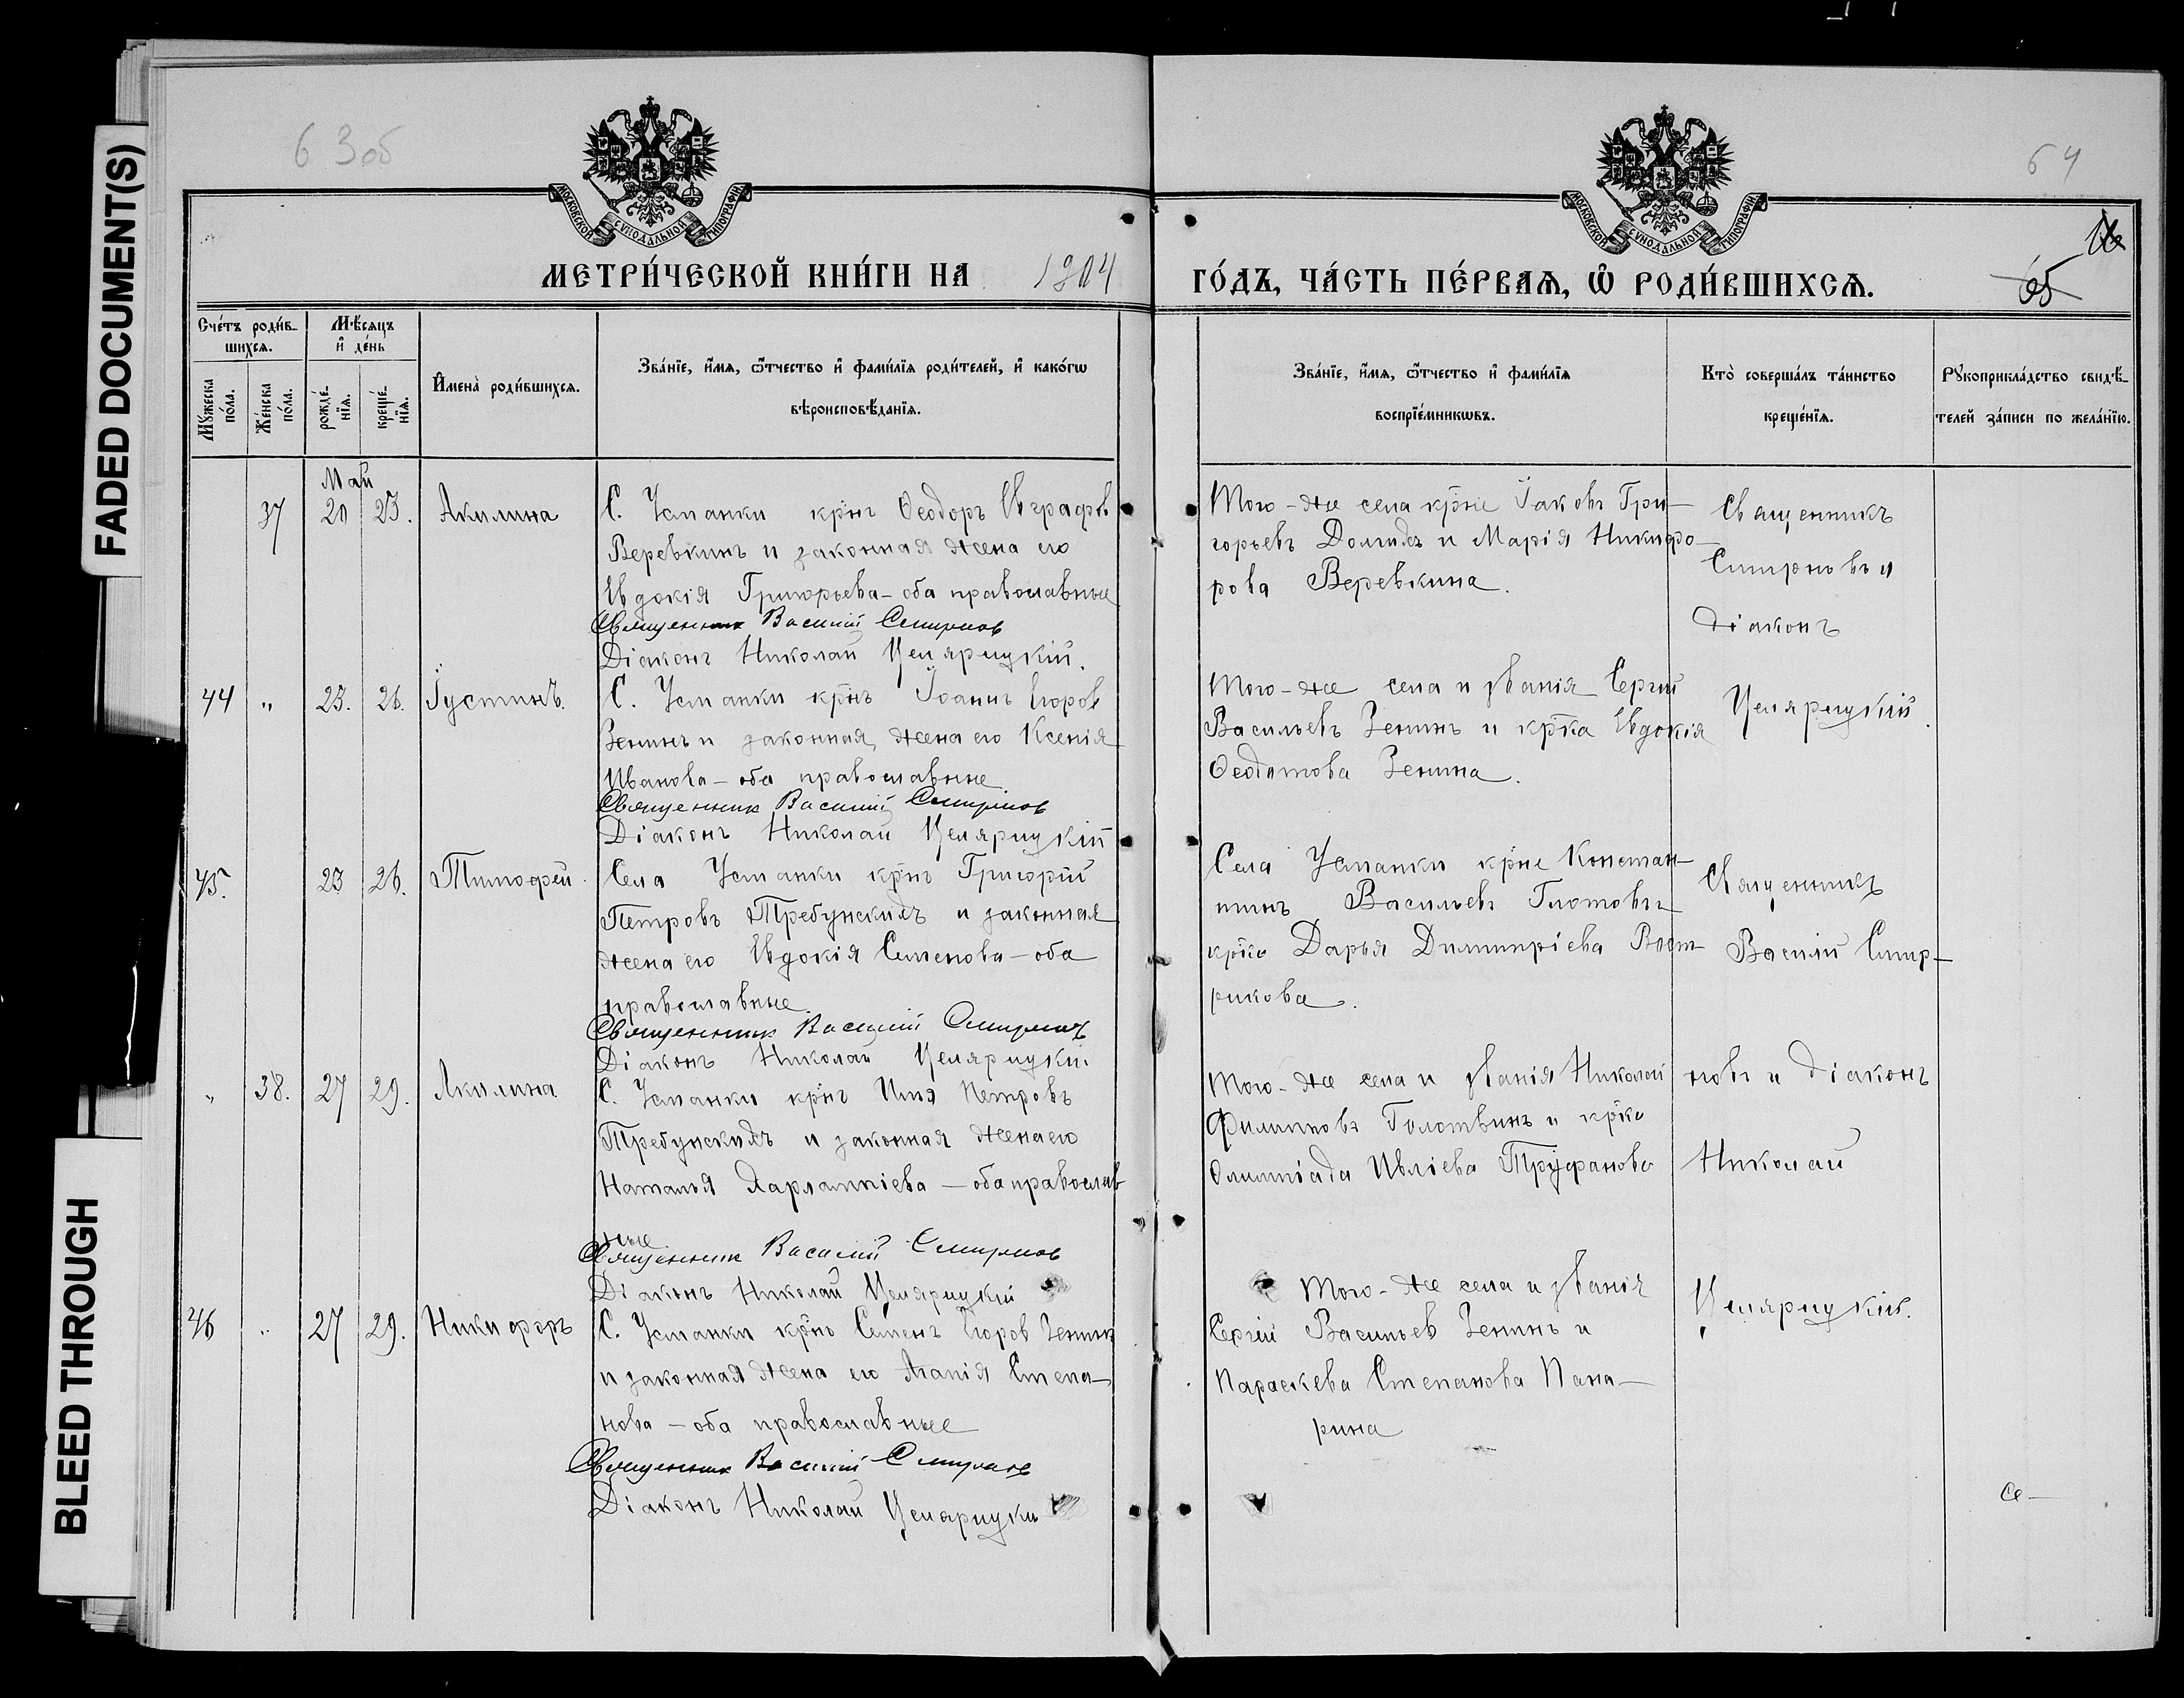 FADED DOCUMENT(S)
BLEED THROUGH
63об
64
МОСКОВСКОЙ СѴНОДАЛЬНОЙ ТИПОГРАФІИ
МОСКОВСКОЙ СѴНОДАЛЬНОЙ ТИПОГРАФІИ
65
МЕТРИ́ЧЕСКОЙ КНИ́ГИ НА 1904
ГО́ДЪ, ЧА́СТЬ ПЕ́РВАѦ, Ѡ҆ РОДИ́ВШИХСѦ.
Сче́тъ роди́в-
шихсѧ.
Мꙋ́жеска по́ла.
Же́нска по́ла.
Мѣ́сѧцъ
и҆ де́нь
рожде́-
нїѧ.
креще́-
нїѧ.
И҆мена̀ роди́вшихсѧ.
Зва́нїе, и҆́мѧ, ѻ҆́тчество и҆ фами́лїѧ роди́телей, и҆ како́гѡ
вѣроисповѣ́данїѧ.
Зва́нїе, и҆́мѧ, ѻ҆́тчество и҆ фами́лїѧ
воспрїе́мникѡвъ.
Кто̀ соверша́лъ та́инство
креще́нїѧ.
Рꙋкоприкла́дство свидѣ́-
телей за́писи по жела́нїю.
Май
37 20 23. Акилина
С. Усманки крнъ Ѳеодоръ Евграфов
Веревкинъ и законная жена его
Евдокія Григорьева - оба православные
Священник Василий Смирнов
Діаконъ Николай Целярицкій.
Того-же села крне Іаковъ Гри-
горьевъ Долгихъ и Марія Никифо-
рова Веревкина.
Священникъ
Смирновъ и
діаконъ
44 " 23. 26. Іустинъ.
С. Усманки крнъ Іоаннъ Егоров
Зенинъ и законная жена его Ксенія
Иванова - оба православные
Священник Василий Смирнов
Діаконъ Николай Целярицкій
Того-же села и званія Сергій
Васильевъ Зенинъ и крка Евдокія
Ѳеодотова Зенина.
Целярицкій.
45. 23 26. Тимофей.
Села Усманки крнъ Григорій
Петровъ Требунскихъ и законная
жена его Евдокія Семенова - оба
православные.
Священник Василий Смирновъ
Діаконъ Николай Целярицкій.
Села Усманки крне Констан-
тинъ Васильевъ Глотовъ и
крка Дарья Димитріева Вост-
рикова.
Священникъ
Василій Смир-
" 38. 27 29. Акилина
С. Усманки крнъ Илія Петровъ
Требунскихъ и законная жена его
Наталья Харлампіева - оба православ
ные
Священник Василий Смирнов
Діаконъ Николай Целярицкій
Того-же села и званія Николай
Филипповъ Голотвинъ и крка
Олимпіада Ивліева Труфанова
новъ и діаконъ
Николай
46 " 27 29. Никифоръ
С. Усманки крнъ Семенъ Егоров Зенинъ
и законная жена его Агапія Степа-
нова - оба православные
Священник Василий Смирнов
Діаконъ Николай Целярицкій
Того-же села и званія
Сергій Васильев Зенинъ и
Параскева Степанова Пана-
рина
Целярицкій.